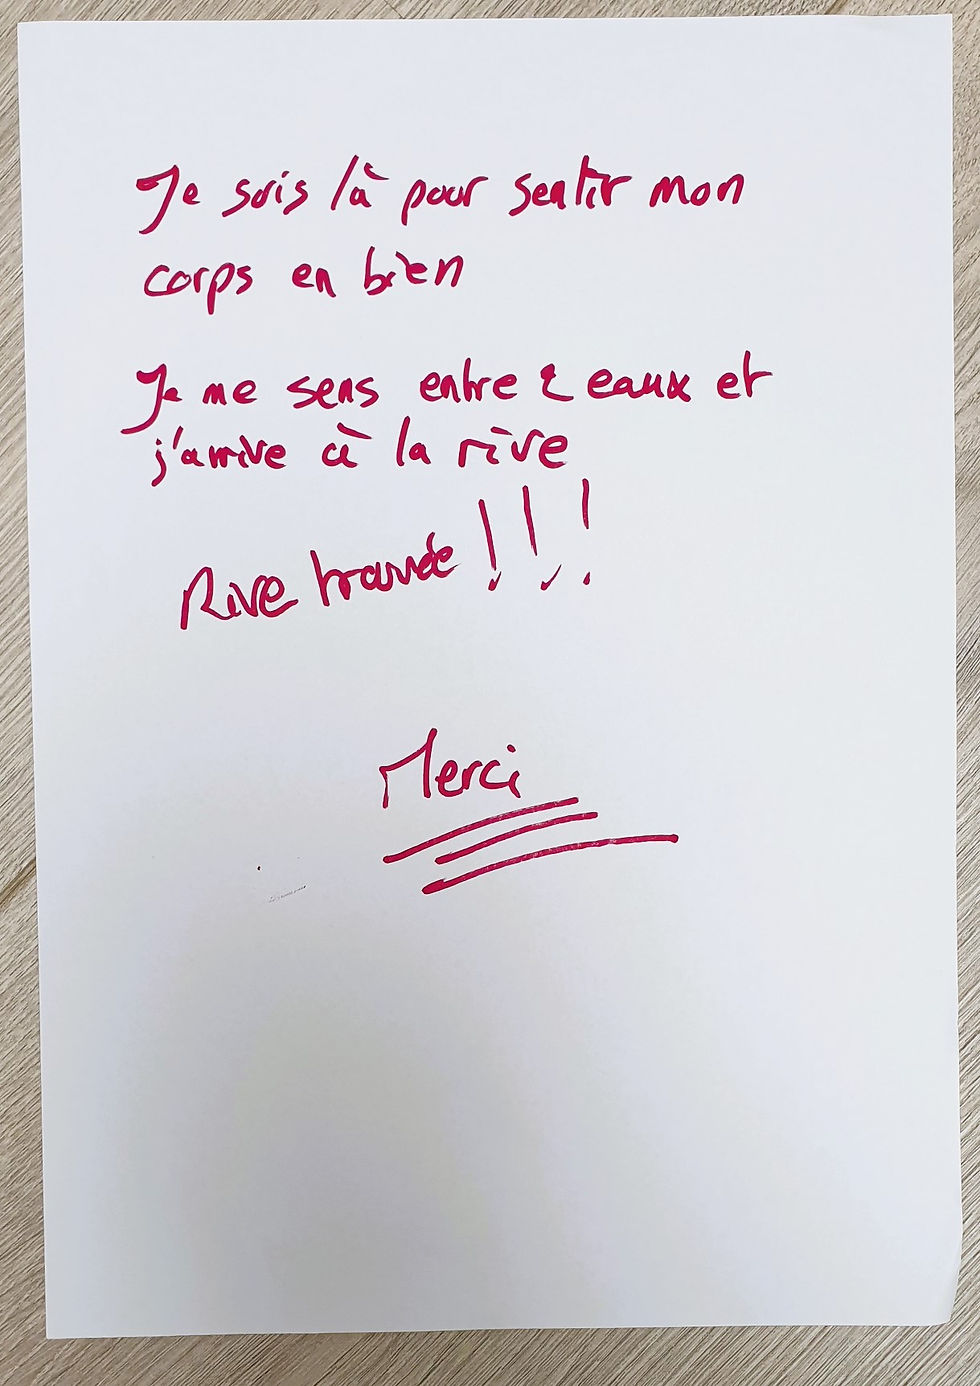 Je suis là pour sentir mon
corps en bien
Je me sens entre 2 eaux et
j'arrive à la rive
Rive trouvée !!!
Merci